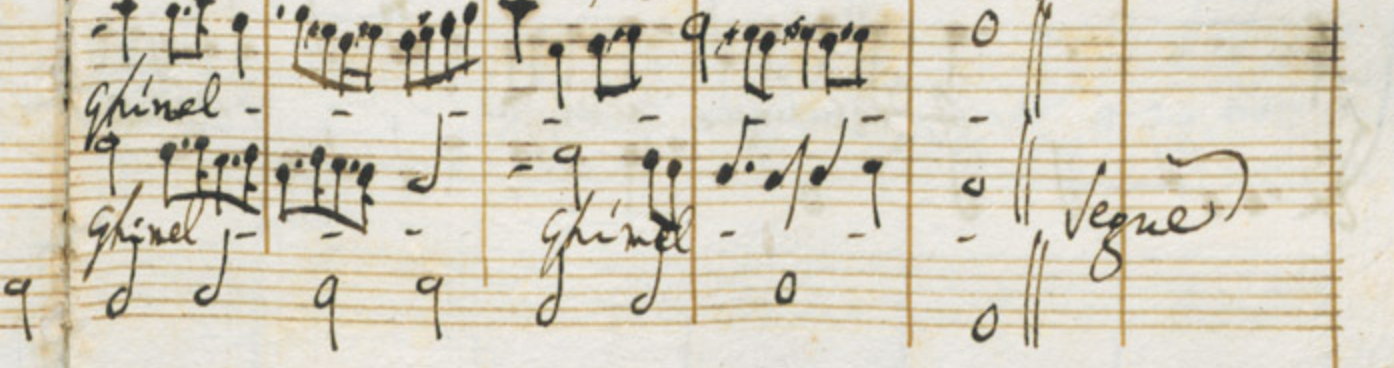 Ghinel - - - - - - -
Ghinel - - - Ghinel - - - Segue